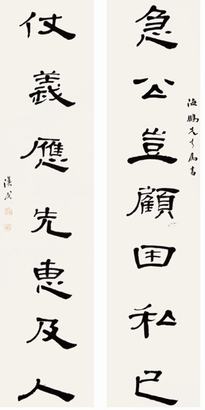 海鵬先生屬書
急公豈顧困私己
仗義應先惠及人
漢民